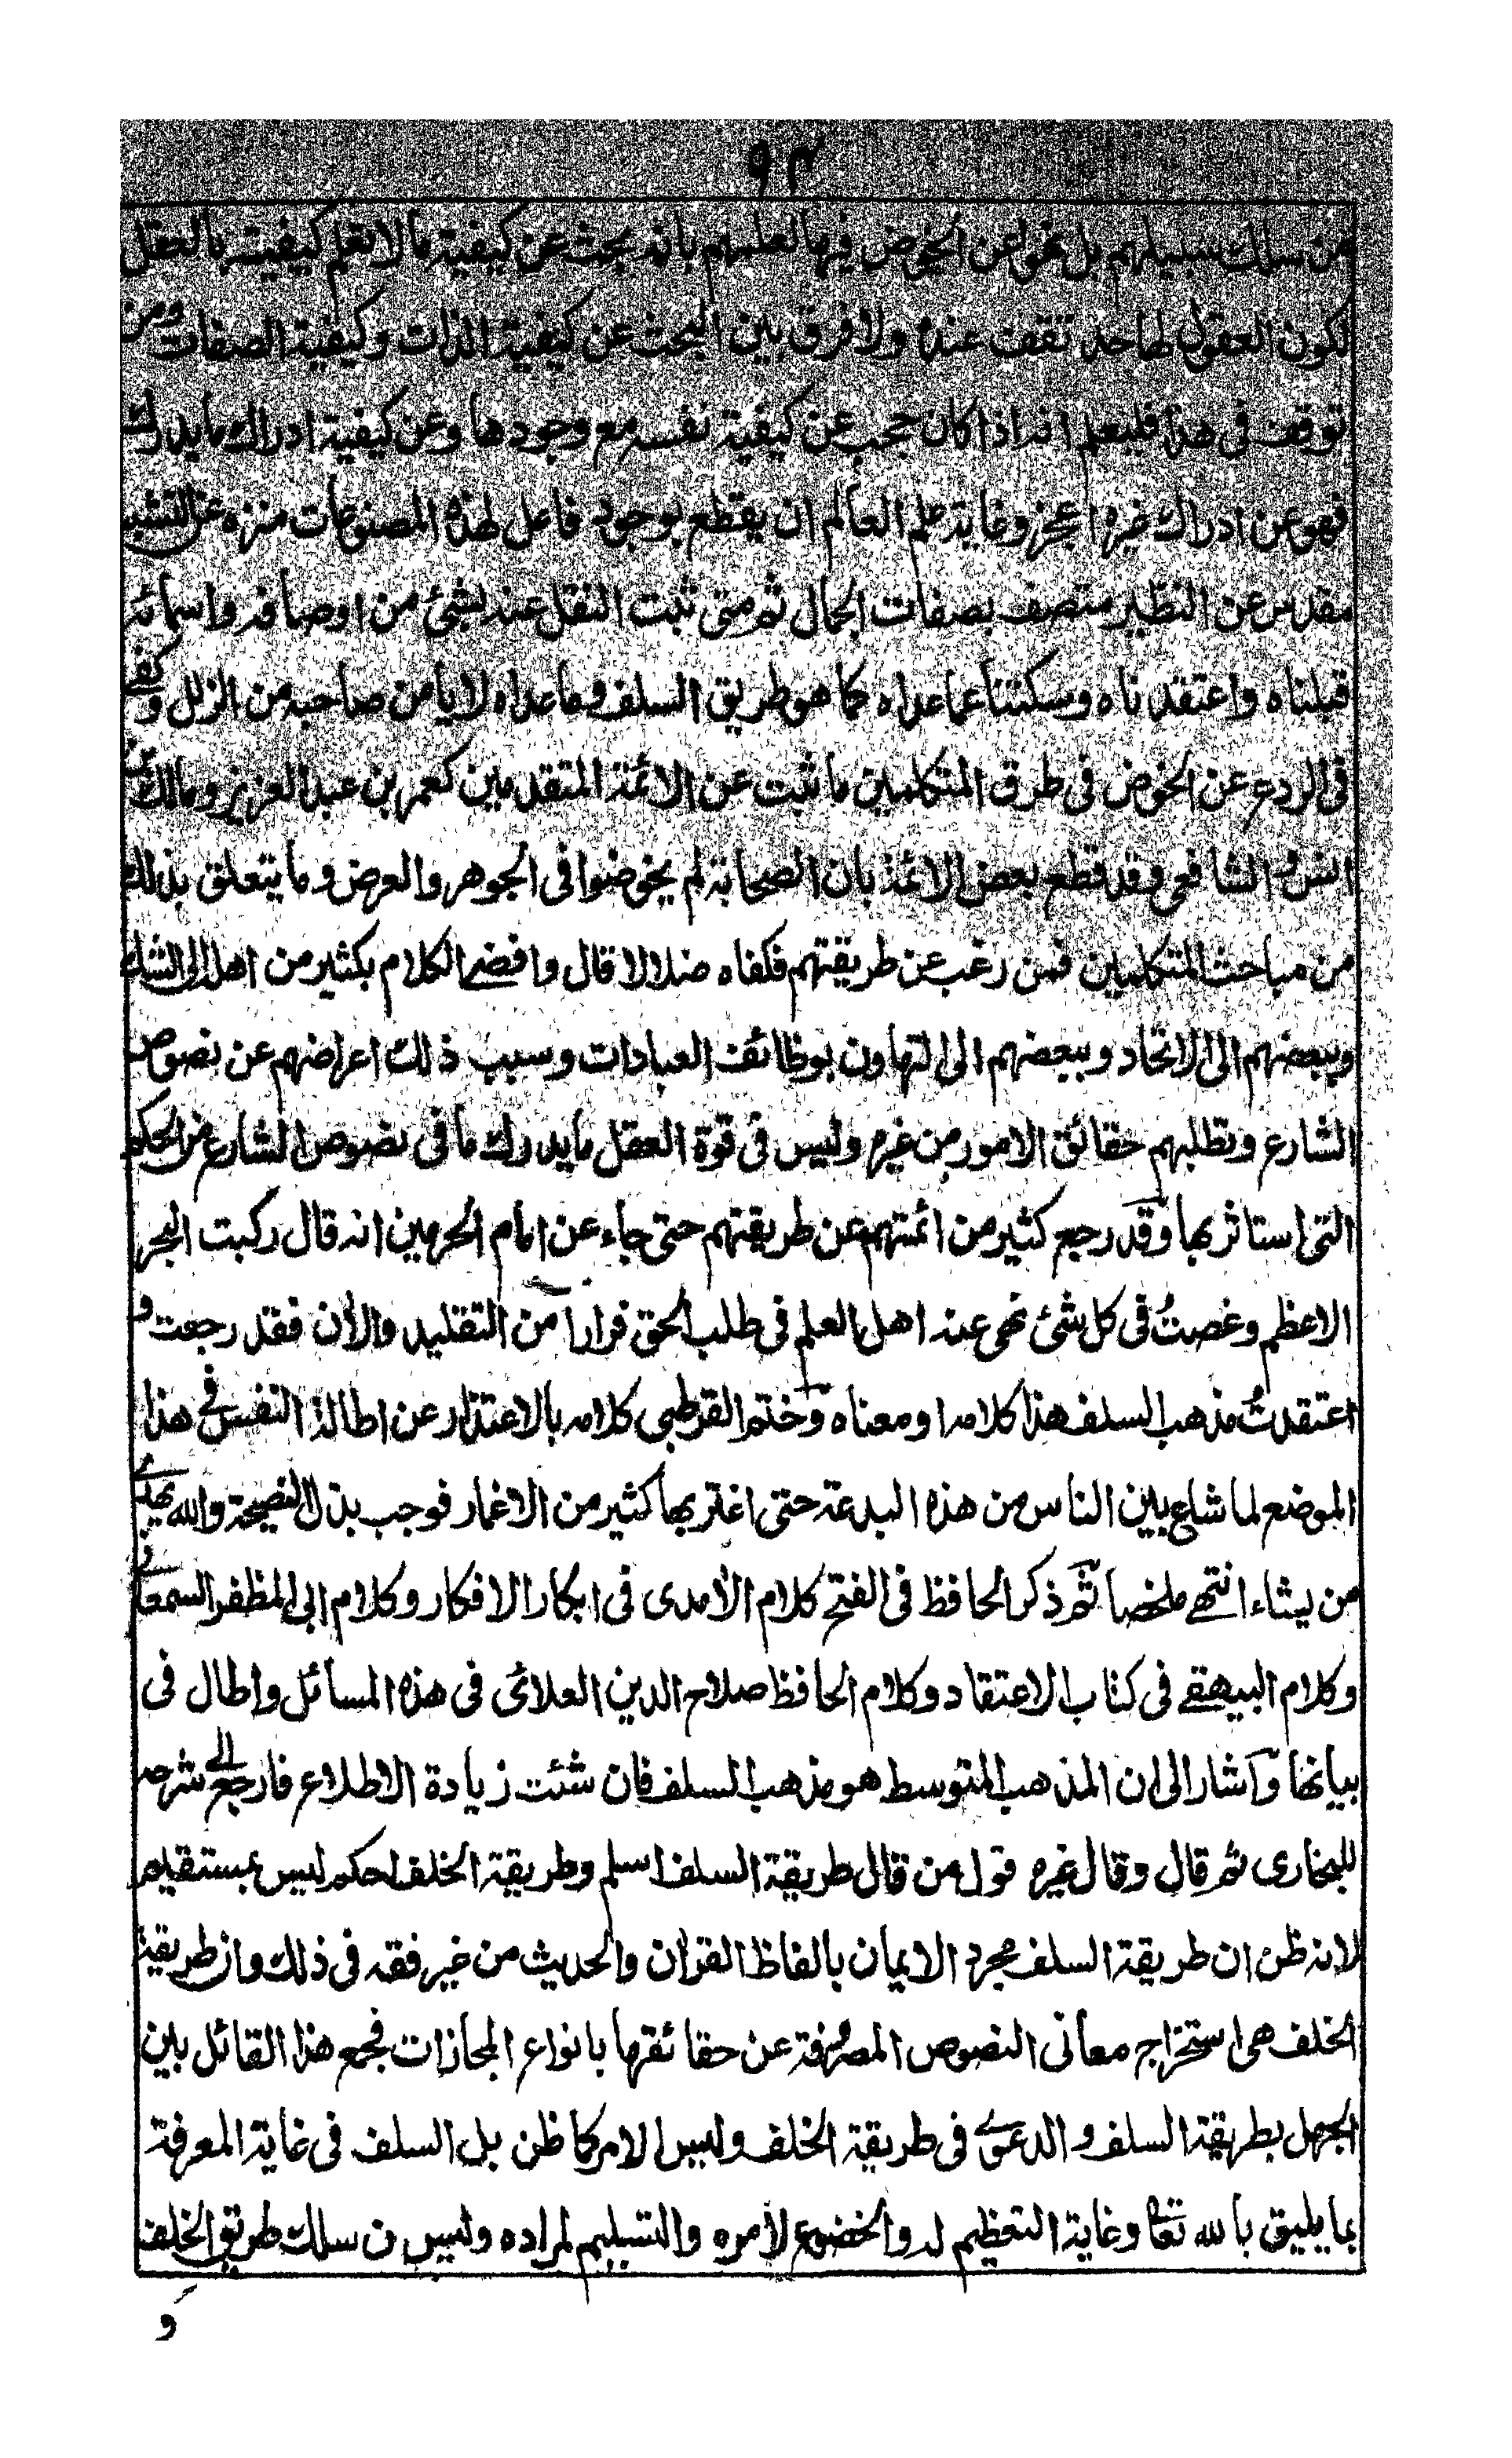 ٩٣
من سلك سبيلهم بل نهوا عن الخوض فيها لعلمهم بانه بحث عن كيفية ما لا تعلم كيفيته بالعقل
لكون العقول لها حد تقف عنده ولا فرق بين البحث عن كيفية الذات وكيفية الصفات ومن
توقف فى هذا فليعلم انه اذا كان حجب عن كيفية نفسه مع وجودها وعن كيفية ادراك ما يدرك
فهو عن ادراك غيره اعجز وغاية علم العالم ان يقطع بوجود فاعل لهذه المصنوعات منزه عن التشبيه
مقدس عن النظير متصف بصفات الجمال ثم متى ثبت النقل عنه بشئ من اوصافه واسمائه
قبلناه واعتقدناه وسكتنا عما عداه كما هو طريق السلف وما عداه لا يا من صاحبه من الزلل وكفى
فى الردع عن الخوض فى طرق المتكلمين ما ثبت عن الائمة المتقدمين كعمر بن عبد العزيز ومالك بن
انس والشافعى وقد قطع بعض الائمة بان الصحابة لم يخوضوا فى الجوهر والعرض وما يتعلق بذلك
من مباحث المتكلمين فمن رغب عن طريقتهم فكفاه ضلالا قال وافضى الكلام بكثير من اهله الى الشك
وببعضهم الى الالحاد وببعضهم الى التهاون بوظائف العبادات وسبب ذلك اعراضهم عن نصوص
الشارع وتطلبهم حقائق الامور من غيره وليس فى قوة العقل ما يدرك ما فى نصوص الشارع من الحكم
التى استاثر بها وقد رجع كثير من ائمتهم عن طريقتهم حتى جاء عن امام الحرمين انه قال ركبت البحر
الاعظم وغصتُ فى كل شئ نهى عنه اهل العلم فى طلب الحق فرارا من التقليد والأن فقد رجعت و
اعتقدتُ مذهب السلف هذا كلامه او معناه وختم القرطبى كلامه بالاعتذار عن اطالة النفس فى هذا
الموضع لما شاع بين الناس من هذه البدعة حتى اغتر بها كثير من الاغمار فوجب بذل النصيحة والله يهدى
من يشاء انتهى ملخصا ثم ذكر الحافظ فى الفتح كلام الأمدى فى ابكار الافكار وكلام ابى المظفر السمعانى
وكلام البيهقى فى كتاب الاعتقاد وكلام الحافظ صلاح الدين العلائى فى هذه المسائل واطال فى
بيانها واشار الى ان المذهب المتوسط هو مذهب السلف فان شئت زيادة الاطلاع فارجع الى شرحه
للبخارى ثم قال وقال غيره قول من قال طريقة السلف اسلم وطريقة الخلف احكم ليس بمستقيم
لانه ظن ان طريقة السلف مجرد الايمان بالفاظ القران والحديث من غير فقه فى ذلك وان طريقة
الخلف هى استخراج معانى النصوص المصروفة عن حقائقها بانواع المجازات فجمع هذا القائل بين
الجهل بطريقة السلف والدعوى فى طريقة الخلف وليس الامر كما ظن بل السلف فى غاية المعرفة
بما يليق بالله تعا وغاية التعظيم له والخضوع لأمره والتسليم لمراده وليس من سلك طريق الخلف
و